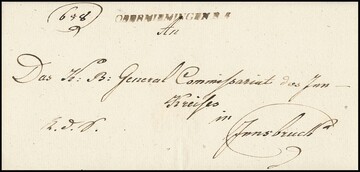 638
OBERMIEMINGEN R. 4
An
Das K: B: General Commissariat des Inn-
Kreises
in
Innsbruck
R. d. S.